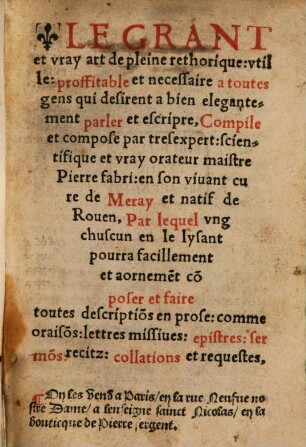 LE GRANT
et vray art de pleine rethorique:vtil
le: proffitable et necessaire a toutes
gens qui desirent a bien elegante-
ment parler et escripre, Compile
et compose par tresexpert:scien-
tifique et vray orateur maistre
Pierre fabri:en son viuant cu
re de Meray et natif de
Rouen, Par lequel vng
chuscun en le lysant
pourra facillement
et aornemẽt cõ
poser et faire
toutes descriptiõs en prose:comme
oraisõs:lettres missiues: epistres:ser
mõs:recitz: collations et requestes.
¶ On les vend a Paris/en la rue Neufue no
stre Dame/a lenseigne sainct Nicolas/en la
bouticque de Pierre sergent.